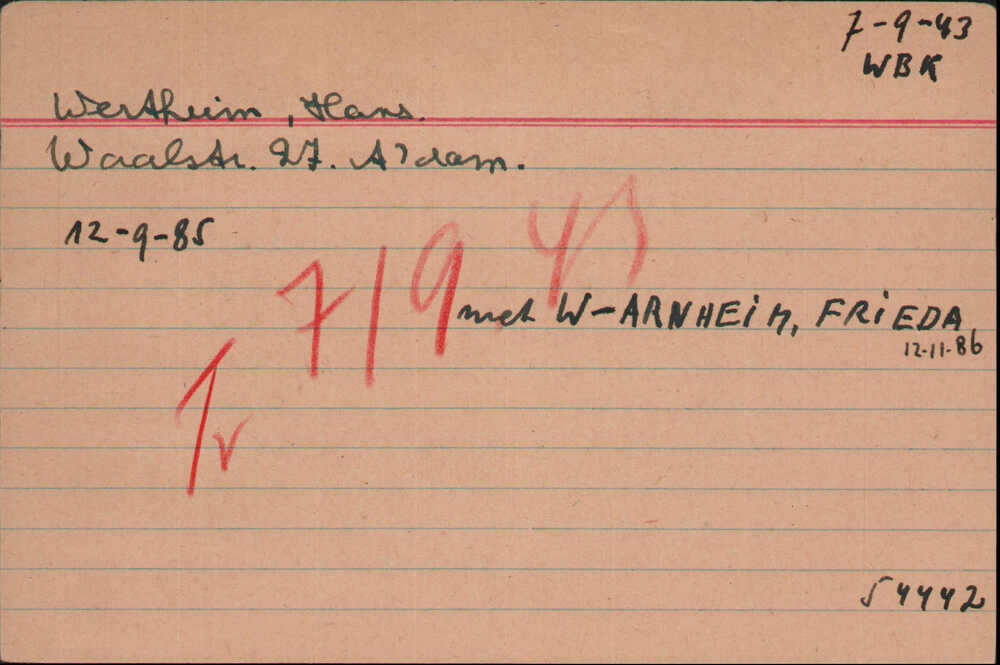 7-9-43
WBK
Wertheim, Hans.
Waalstr. 27. A'dam.
12-9-85
7/9 43
met W-ARNHEIM, FRIEDA,
12-11-86
Tr
54442